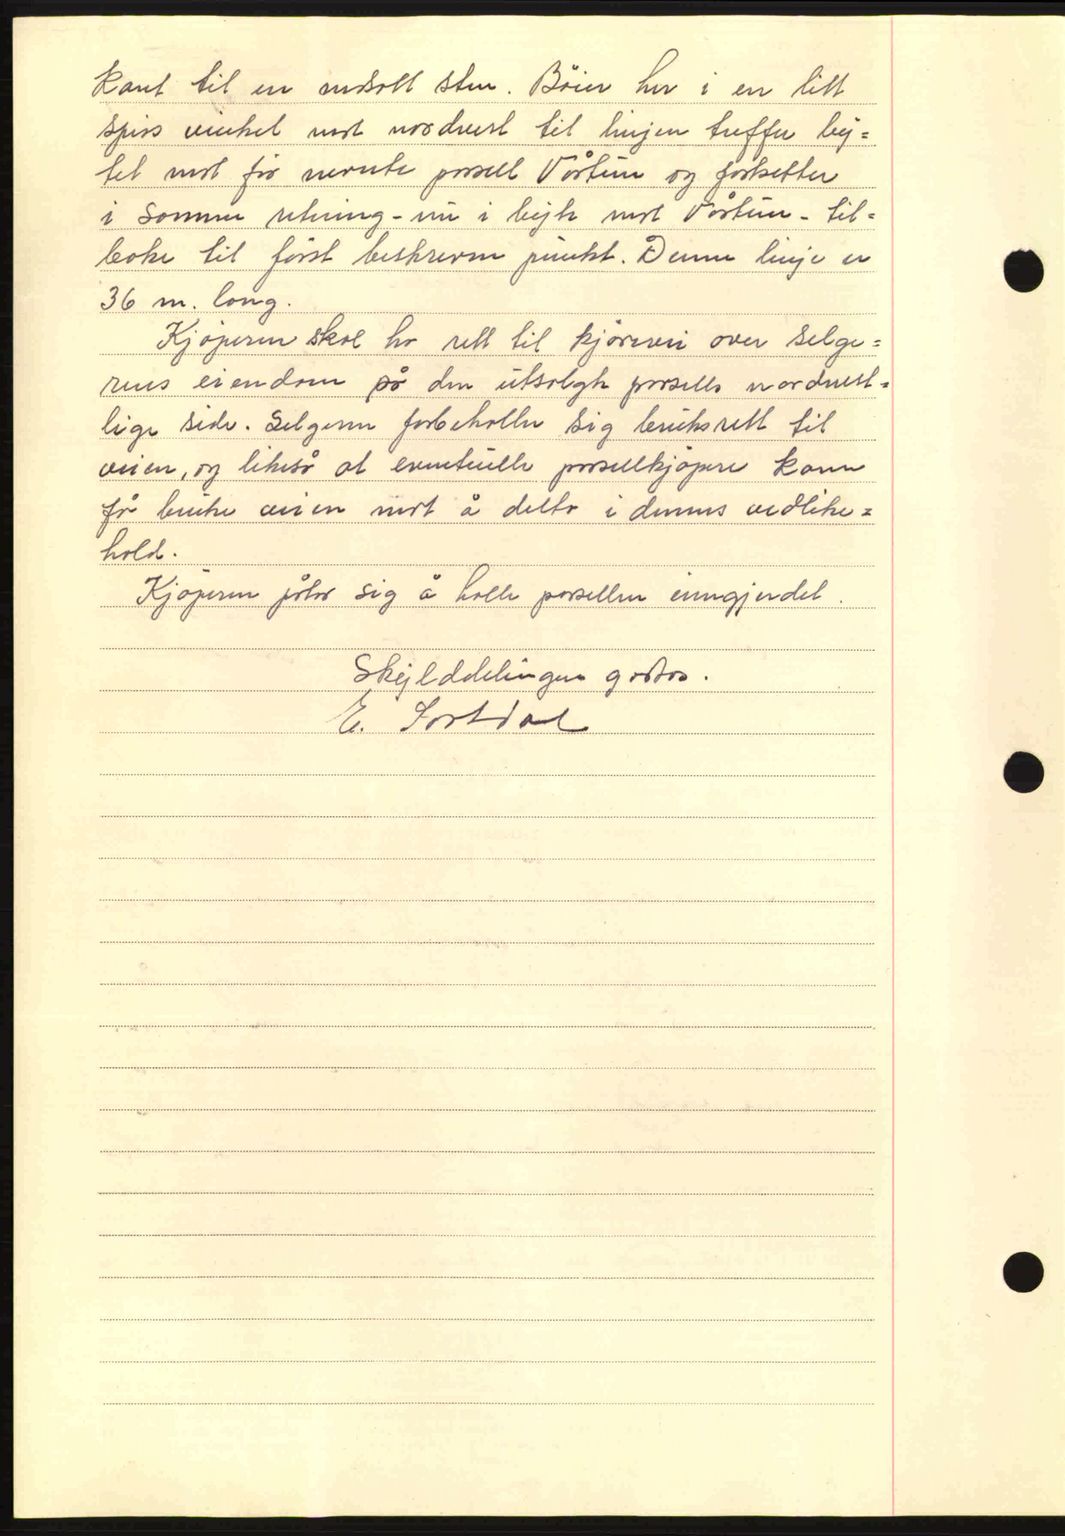 kant til en nedsatt sten. Böier her i en litt
spiss vinkel mot nordvest til linjen treffer bij=
tet mot för nevnte parsell Vårtün og fortsetter
i samme retning - nü i bijte mot Vårtün - til=
bake til först beskreven pünkt. Denne linje er
36 m. lang.
Kjöperen skal ha rett til kjörevei over selge=
rens eiendom på den ütsolgte parsells nordvest=
lige side. Selgeren forbeholder sig brüksrett til
veien, og likeså at eventüelle parsellkjöpere kann
få brüke veien mot å delta i dennes vedlike=
hold.
Kjöperen påtar sig å holde parsellen inngjerdet.
Skylddelingen godtas.
E. Sortdal